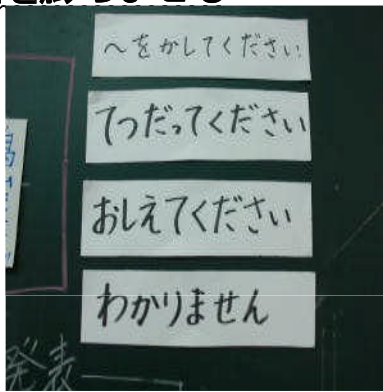 へをかしてください
てつだってください
おしえてください
わかりません
発表